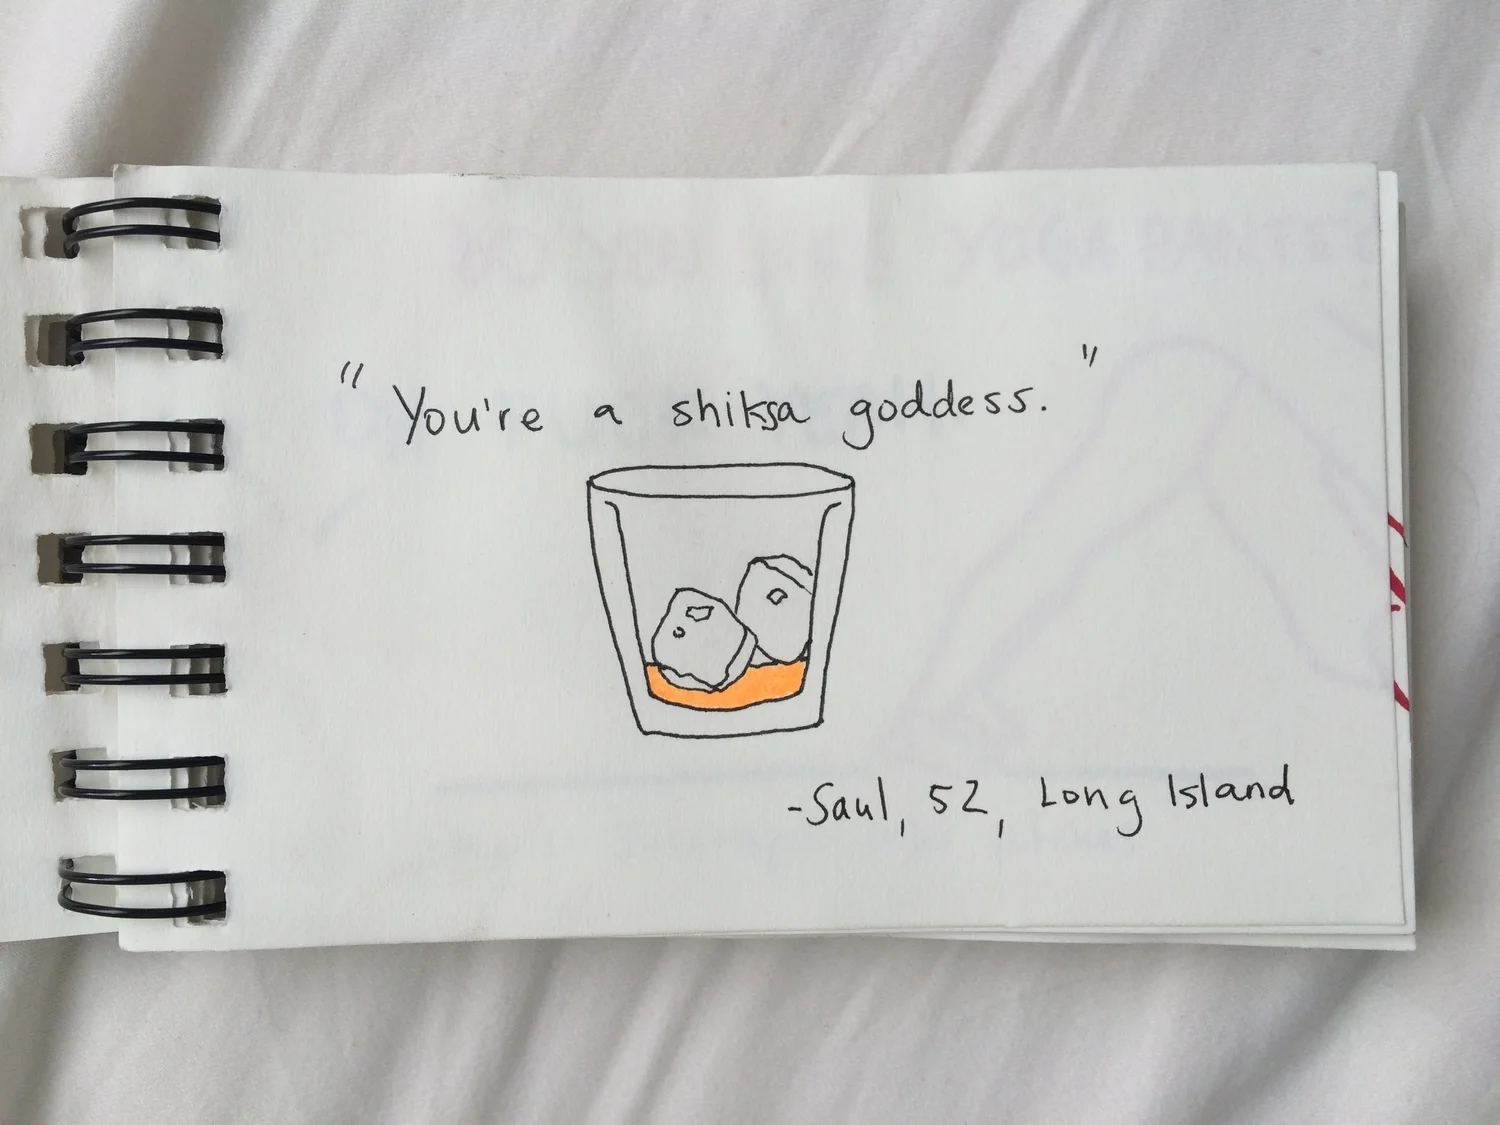 "You're a shiksa goddess."
-Saul, 52, Long Island